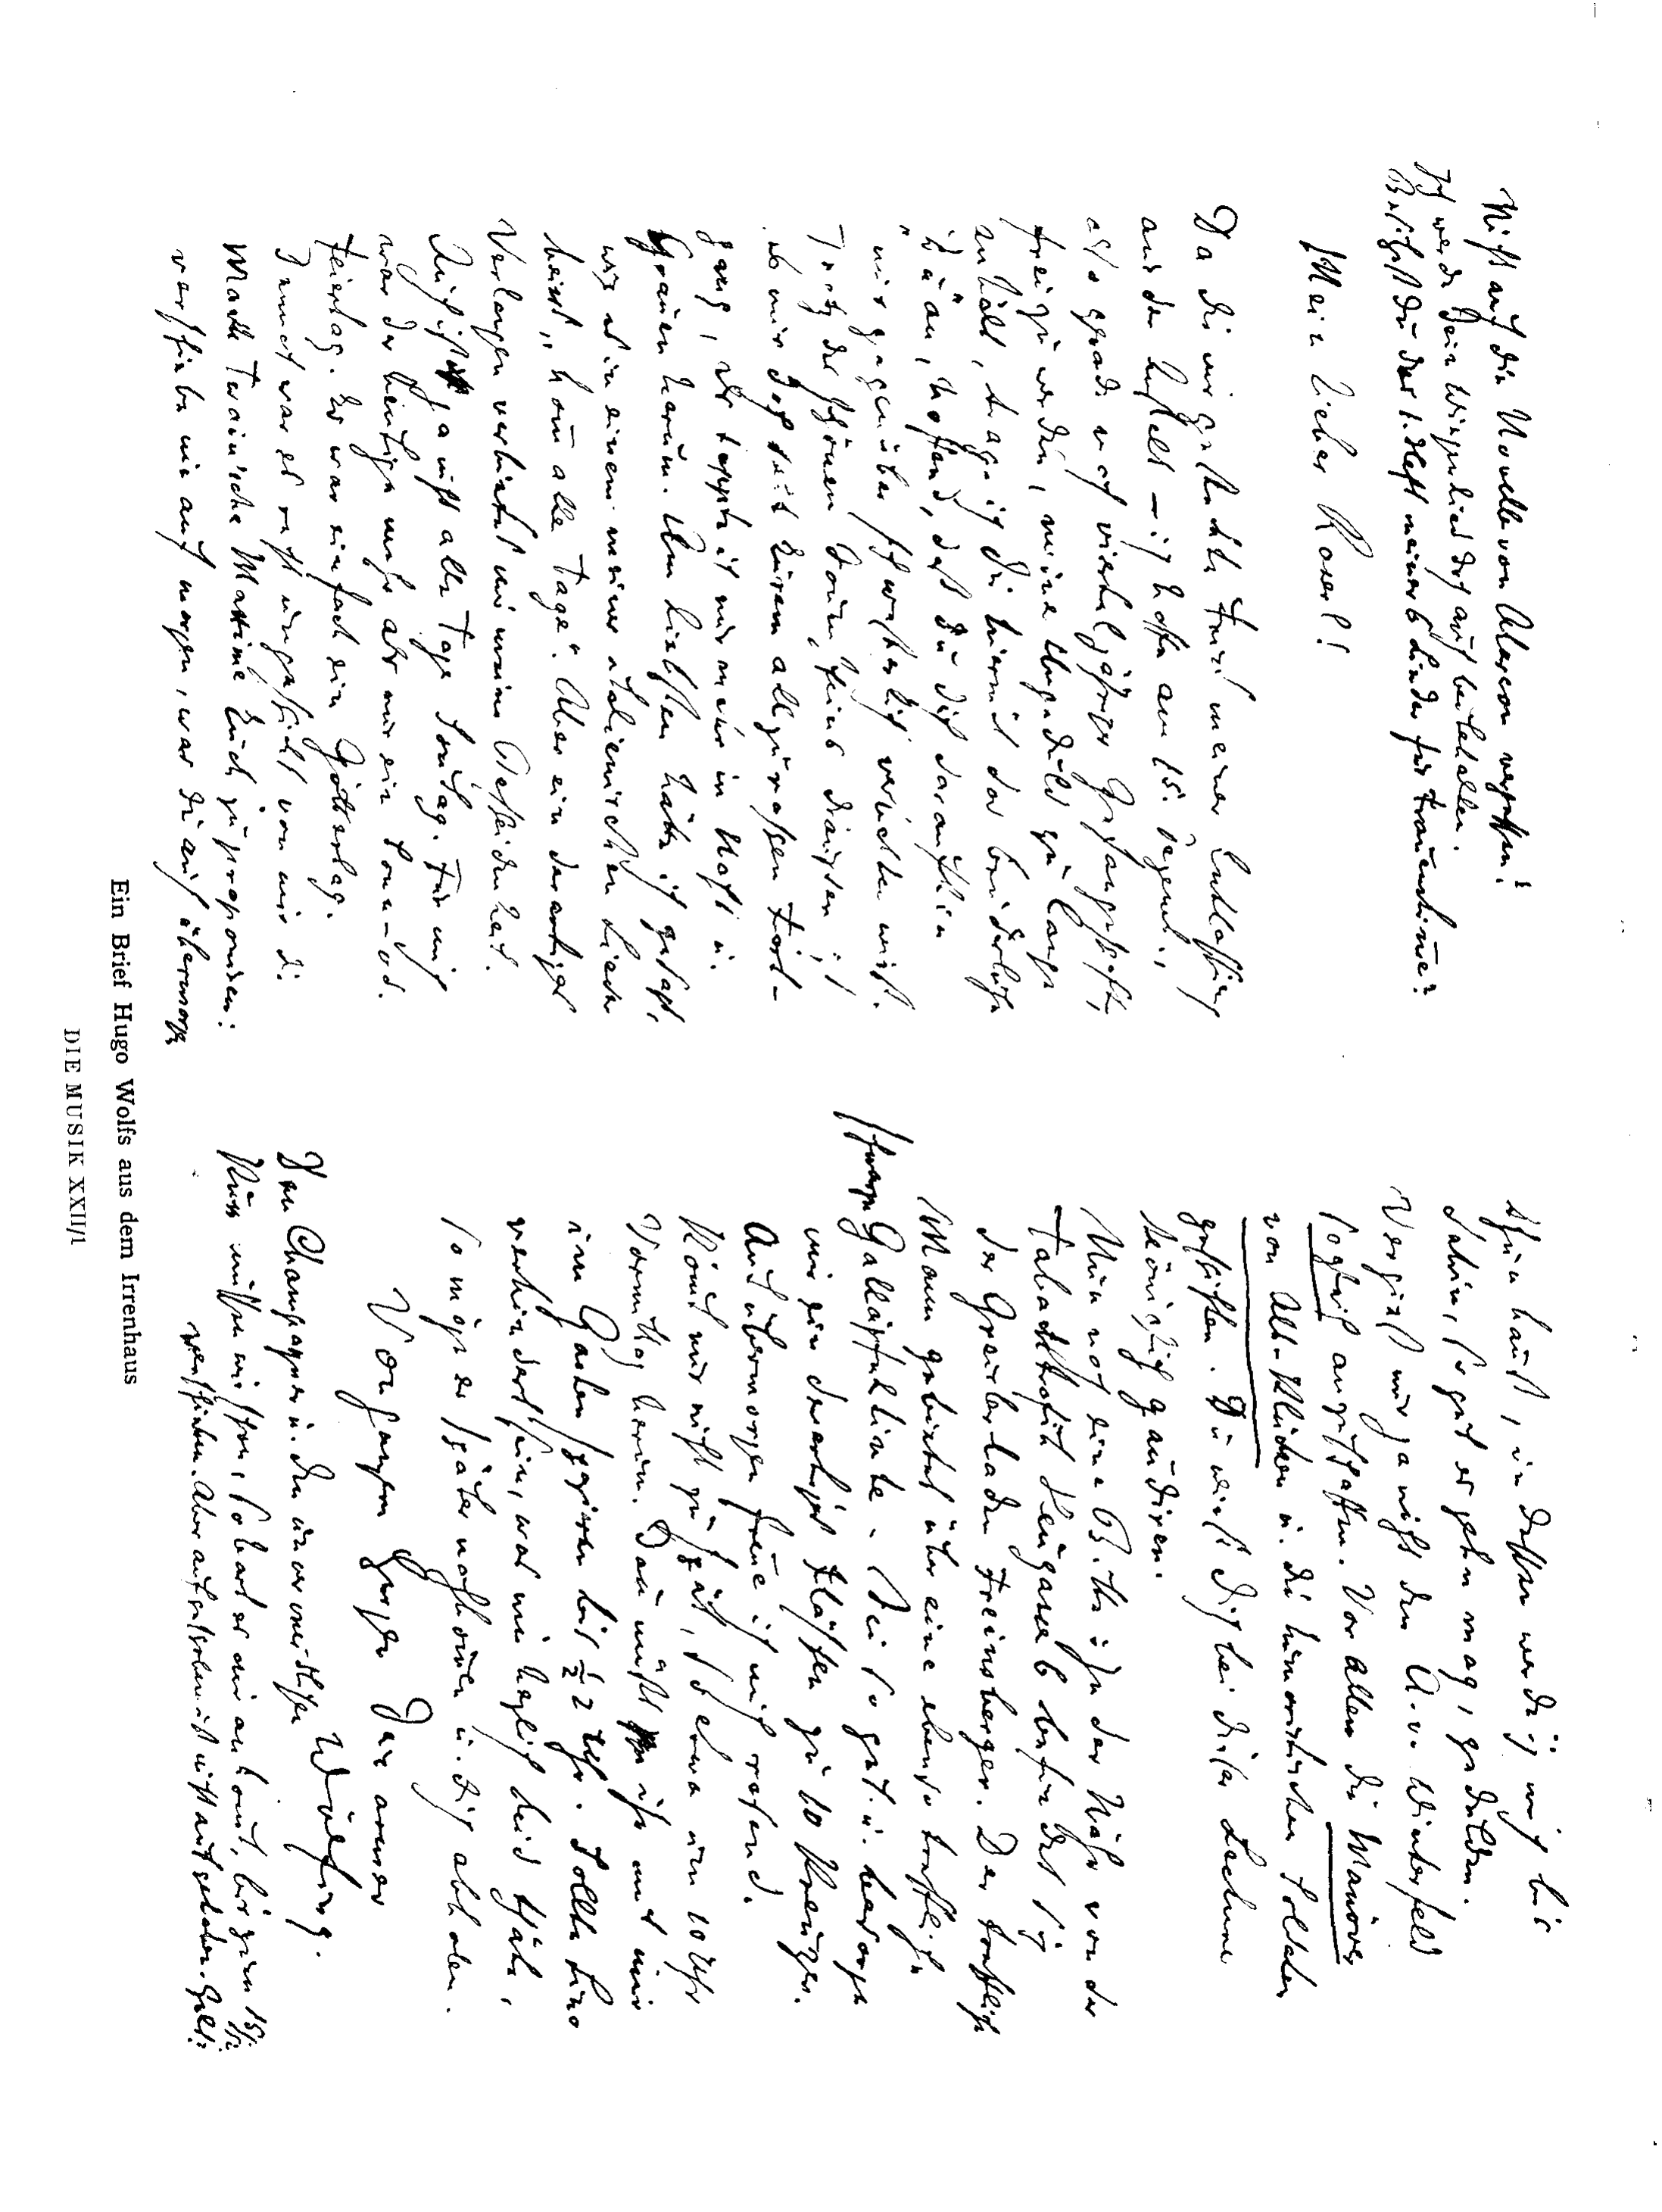 Nicht auf die Novelle von Alarcon vergessen!
Ich werde Dein Wiegenlied doch auch behalten.
Besitzest Du das 1. Heft meiner Lieder für Frauenstimme?
Mein lieber Roserl!
Da die vor mir Frist meiner Entlassung
aus der Anstalt – ich hoffe am 15. dezemb.,
also gerade nach vierteljähriger Gefangenschaft,
frei zu werden, meine Ungeduld zu lange
hinhält, trage ich Dir hiermit das brüderliche
"Du" an, hoffend, daß Du dich daraufhin
mir gegenüber schwesterlich verhalten wirst.
Trotz der schönen Sonne
als wir doch seit Eurem allzuraschen Fort-
gang, da tappte ich nur mehr in Nacht u.
Grauen herum. Am liebsten hätte ich gesagt,
wie es in einem meiner italienischen Lieder
heisst, "kom alle Tage". Aber ein derartiges
Verlangen verbietet mir meine Bescheidenheit.
Auch ist ja nicht alle Tage Sontag. Für mich
war der heutige mehr als nur ein Son-
Feiertag. Er war einfach ein Göttertag.
Dennoch war es recht ungeschickt von mir die
Mark Twain'sche Maxime Euch zu proponiren:
verschiebe nie auf morgen, was du auch übermorgen
thun kanst, in dessen werde ich mich bis
dahin, so gut es gehn mag, gedulden.
Vergiss mir ja nicht den A. v. Winterfeld
sogleich anzuschaffen. Vor allem die Manöver
von Alt-Klücken u. die humoristischen Soldaten
geschichten. Du wirst dich bei dieser Lectüre
königlich gaudiren.
Nun noch eine Bitte: In der Nähe von der
Tabacktrafik Neugasse 6 befindet sich
der Greislerladen Freinsberger. Der treffliche
Mann gebietet über eine ebenso treffliche
schwarze Gallapfeltinte. Sei so gut u. besorge
mir ein derartiges Fläschchen zu 10 Kreuzer.
Auf übermorgen freue ich mich rasend.
Komt nur nicht zu spät, so etwa um 10 Uhr
Vormittag herum. Dan müsst ihr mit mir
im Garten spaziren bis ½ 2 Uhr. Sollte Lino
verhindert sein, was mir herzlich leid thäte,
so möge er später nachkomen u. dich abholen.
Von ganzem Herzen Dein armer
Wölfing.
Den Champagner u. den unvermeidlichen
Kuss müssen wir schon, sobald er mir ankomt, bis zum 15/12
verschieben. Aber aufgeschoben ist nicht aufgehoben. Gelt?
Ein Brief Hugo Wolfs aus dem Irrenhaus
DIE MUSIK XXII/1